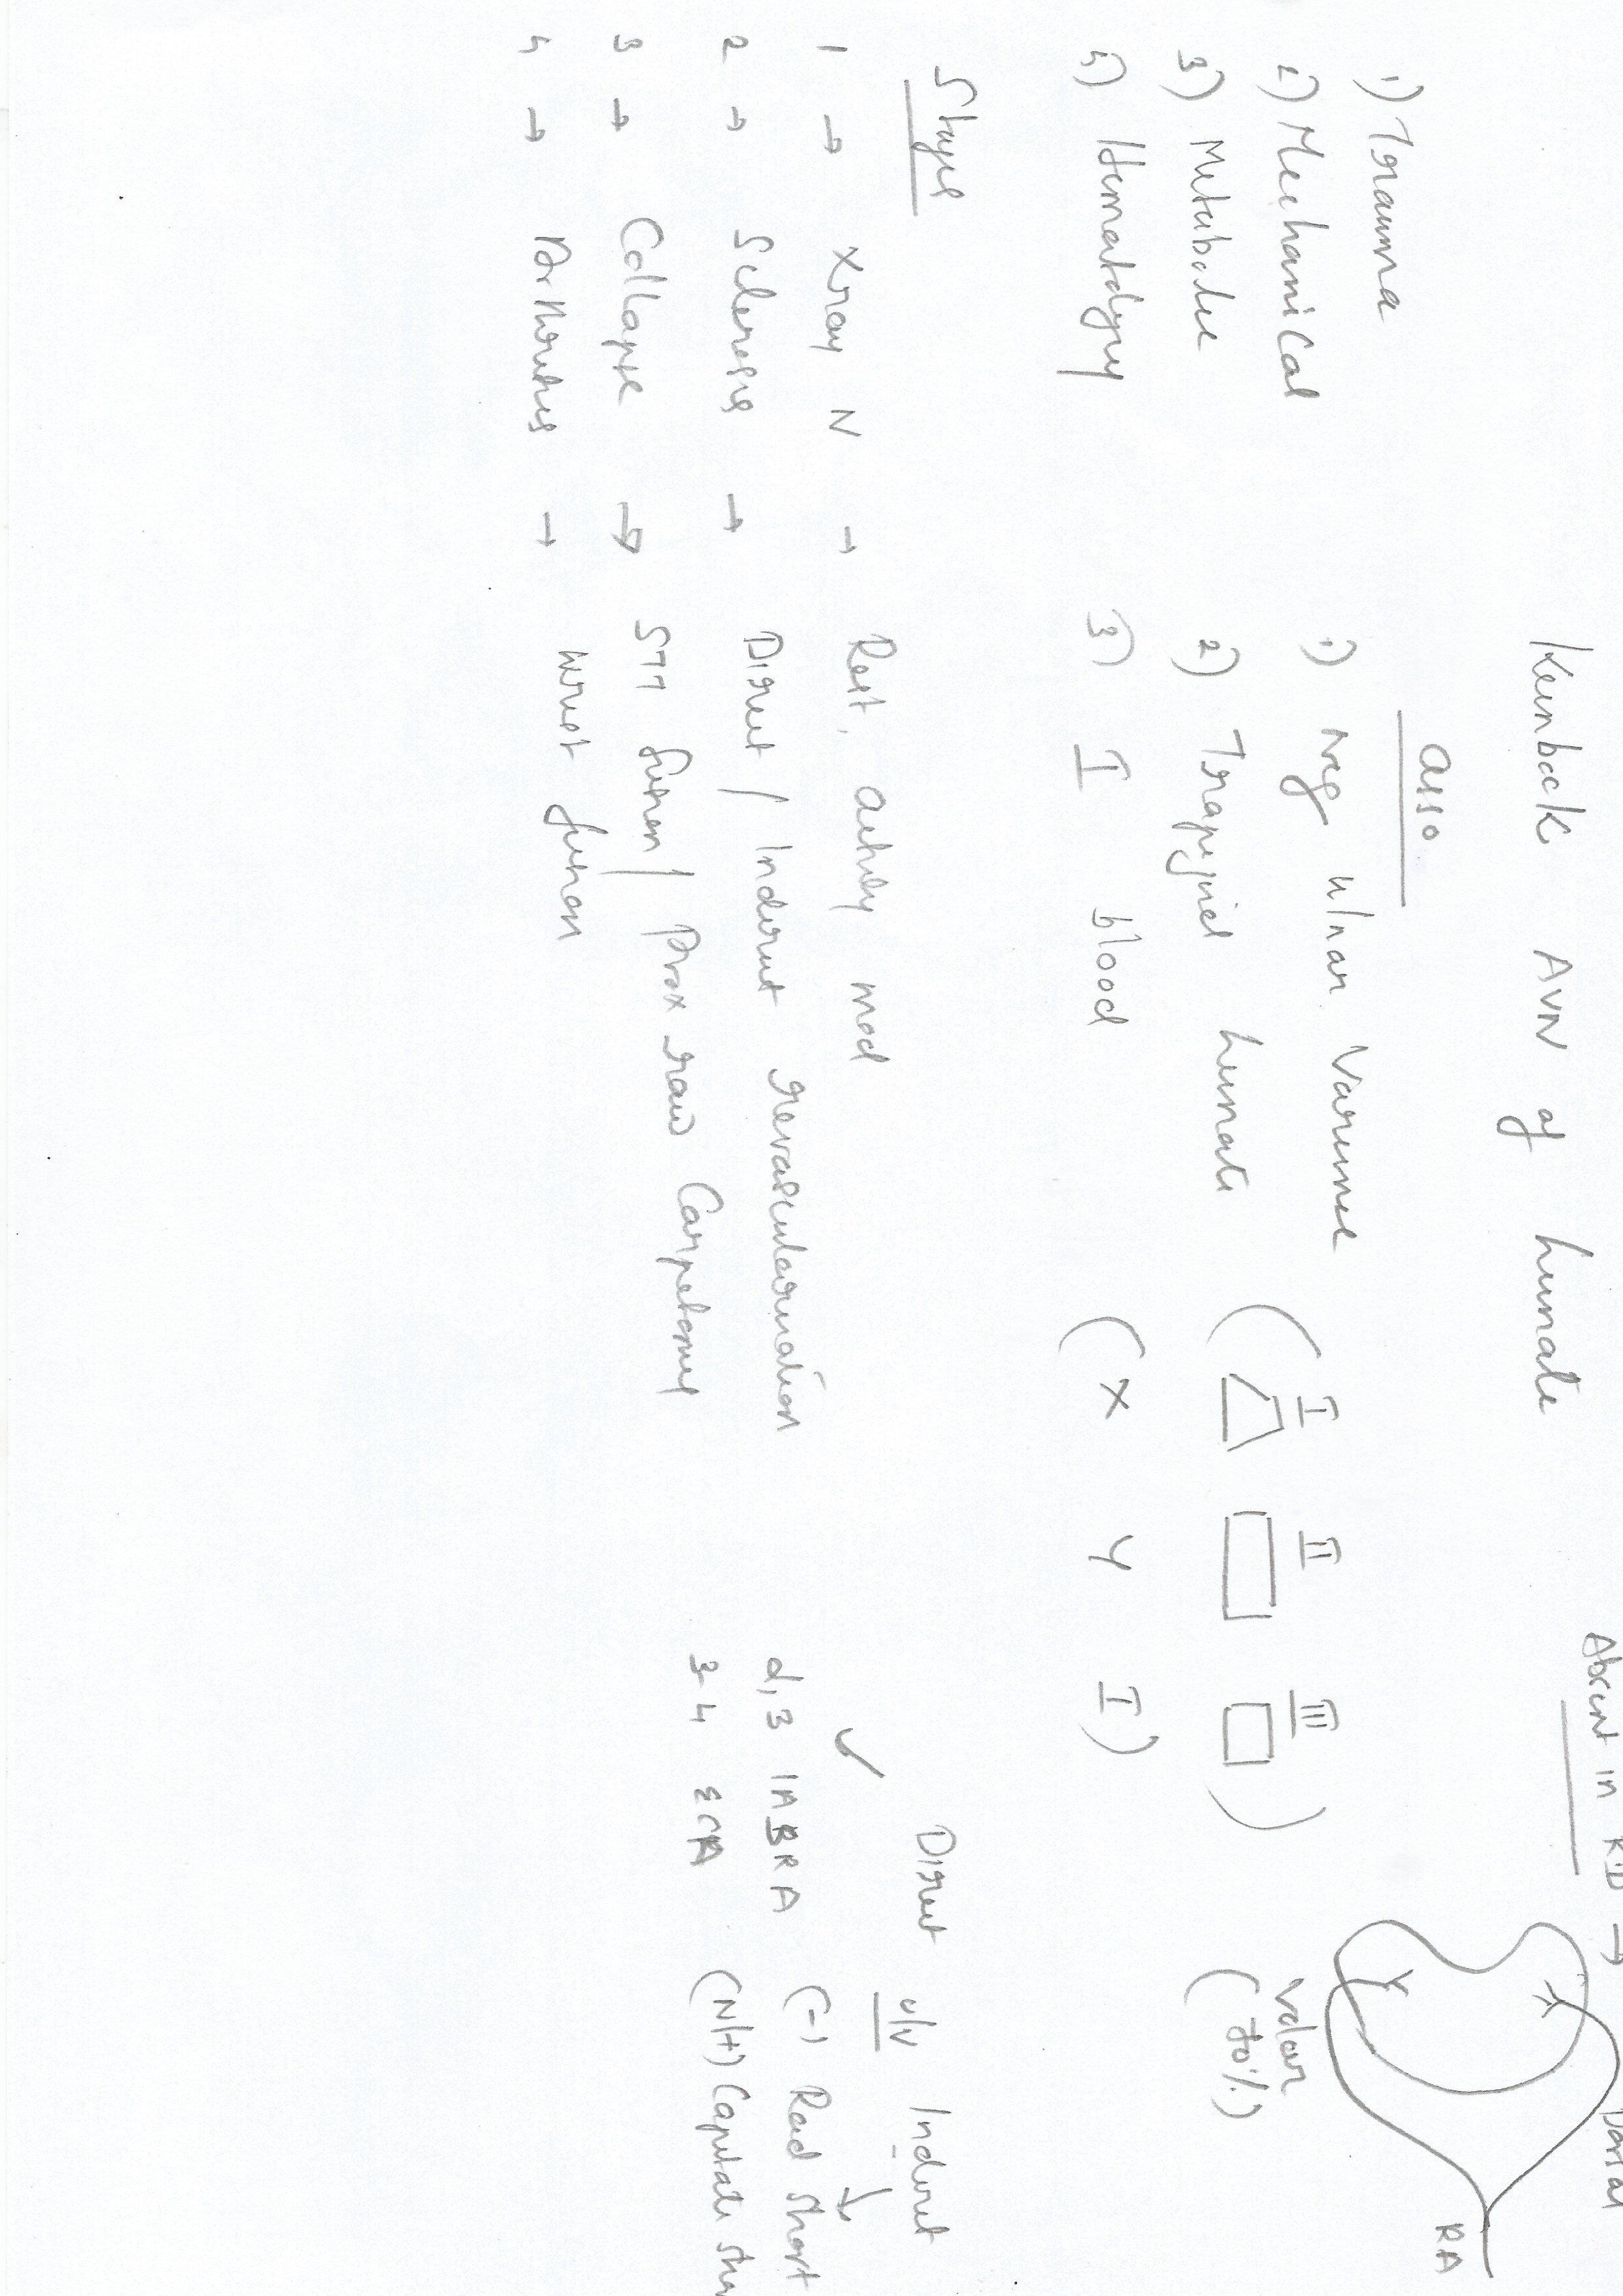 Keinbock AVN of lunate
Absent in KD →
Dorsal
RA
Volar
(70%)
1) Trauma
2) Mechanical
3) Metabolic
4) Hematology
Asso
1) Neg ulnar Varience
2) Trapezoid lunate ( I II III )
3) I blood (X Y I)
Stages
1 → Xray N → Rest, activity mod
2 → Sclerosis → Direct / Indirect revascularisation
3 → Collapse → STT fusion / Prox row Carpectomy
4 → Arthritis → wrist fusion
Direct Indirect
u/v
2,3 ICSRA (-) Rad short
3-4 ECA (N/+) Capitate sho